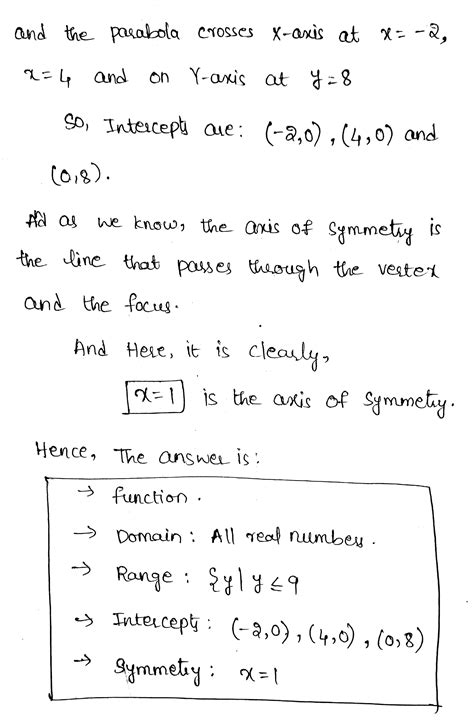 and the parabola crosses X-axis at x = -2,
x = 4 and on Y-axis at y = 8
So, Intercepts are: (-2,0), (4,0) and
(0,8).
And as we know, the axis of symmetry is
the line that passes through the vertex
and the focus.
And Here, it is clearly,
x = 1 is the axis of symmetry.
Hence, The answer is:
→ function.
→ Domain: All real numbers.
→ Range: {y| y ≤ 9
→ Intercepts: (-2,0), (4,0), (0,8)
→ Symmetry: x = 1